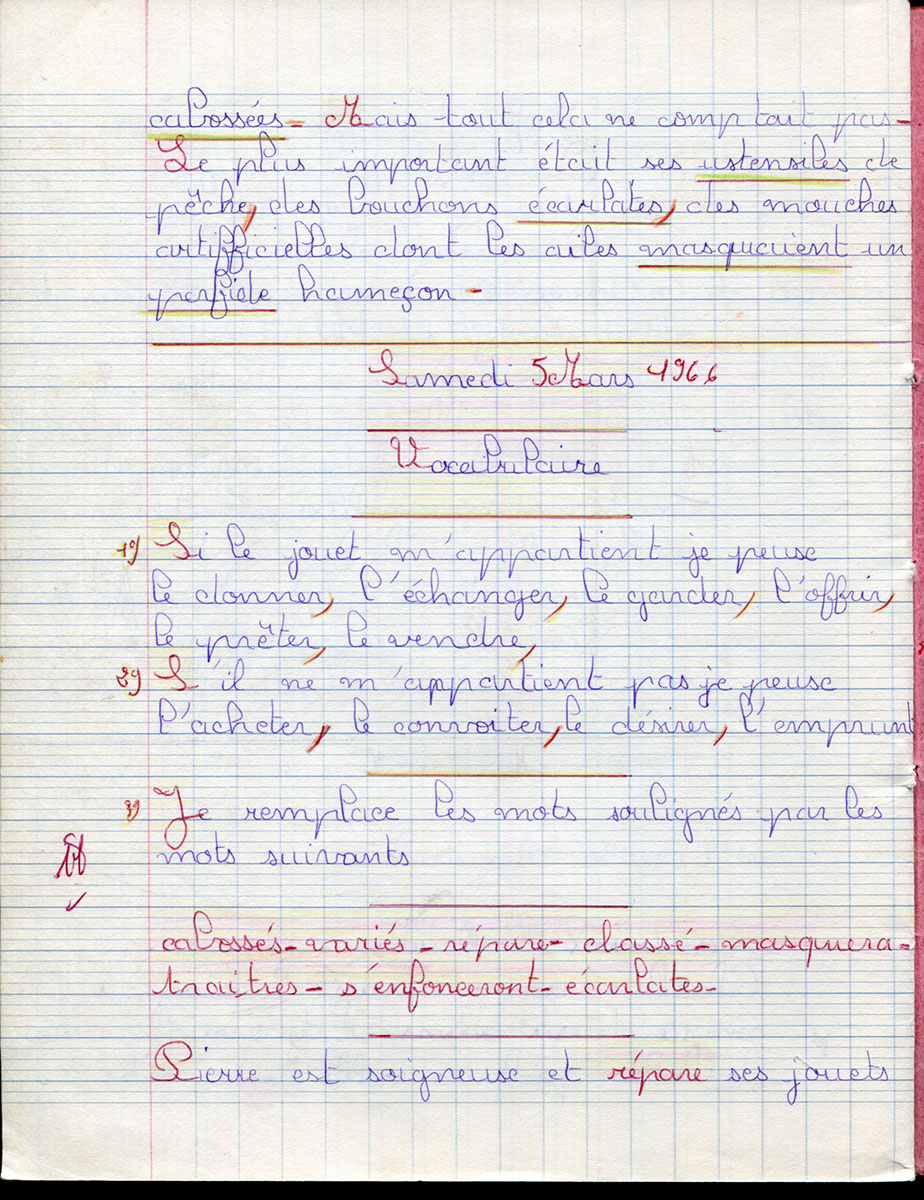 cabossées - Mais tout cela ne comptait pas -
Le plus important était ses ustensiles de
pêche, des bouchons écarlates, des mouches
artifficielles dont les ailes masquaient un
perfide hameçon -
Samedi 5 Mars 1966
Vocabulaire
1°) Si le jouet m'appartient je peux
le donner, l'échanger, le garder, l'offrir,
le prêter, le vendre,
2°) S'il ne m'appartient pas je peux
l'acheter, le convoiter, le désirer, l'emprunt
3°) Je remplace les mots soulignés par les
mots suivants
cabossés - variés - répare - classé - masquera -
traitres - s'enfonceront - écarlates -
Pierre est soigneux et répare ses jouets